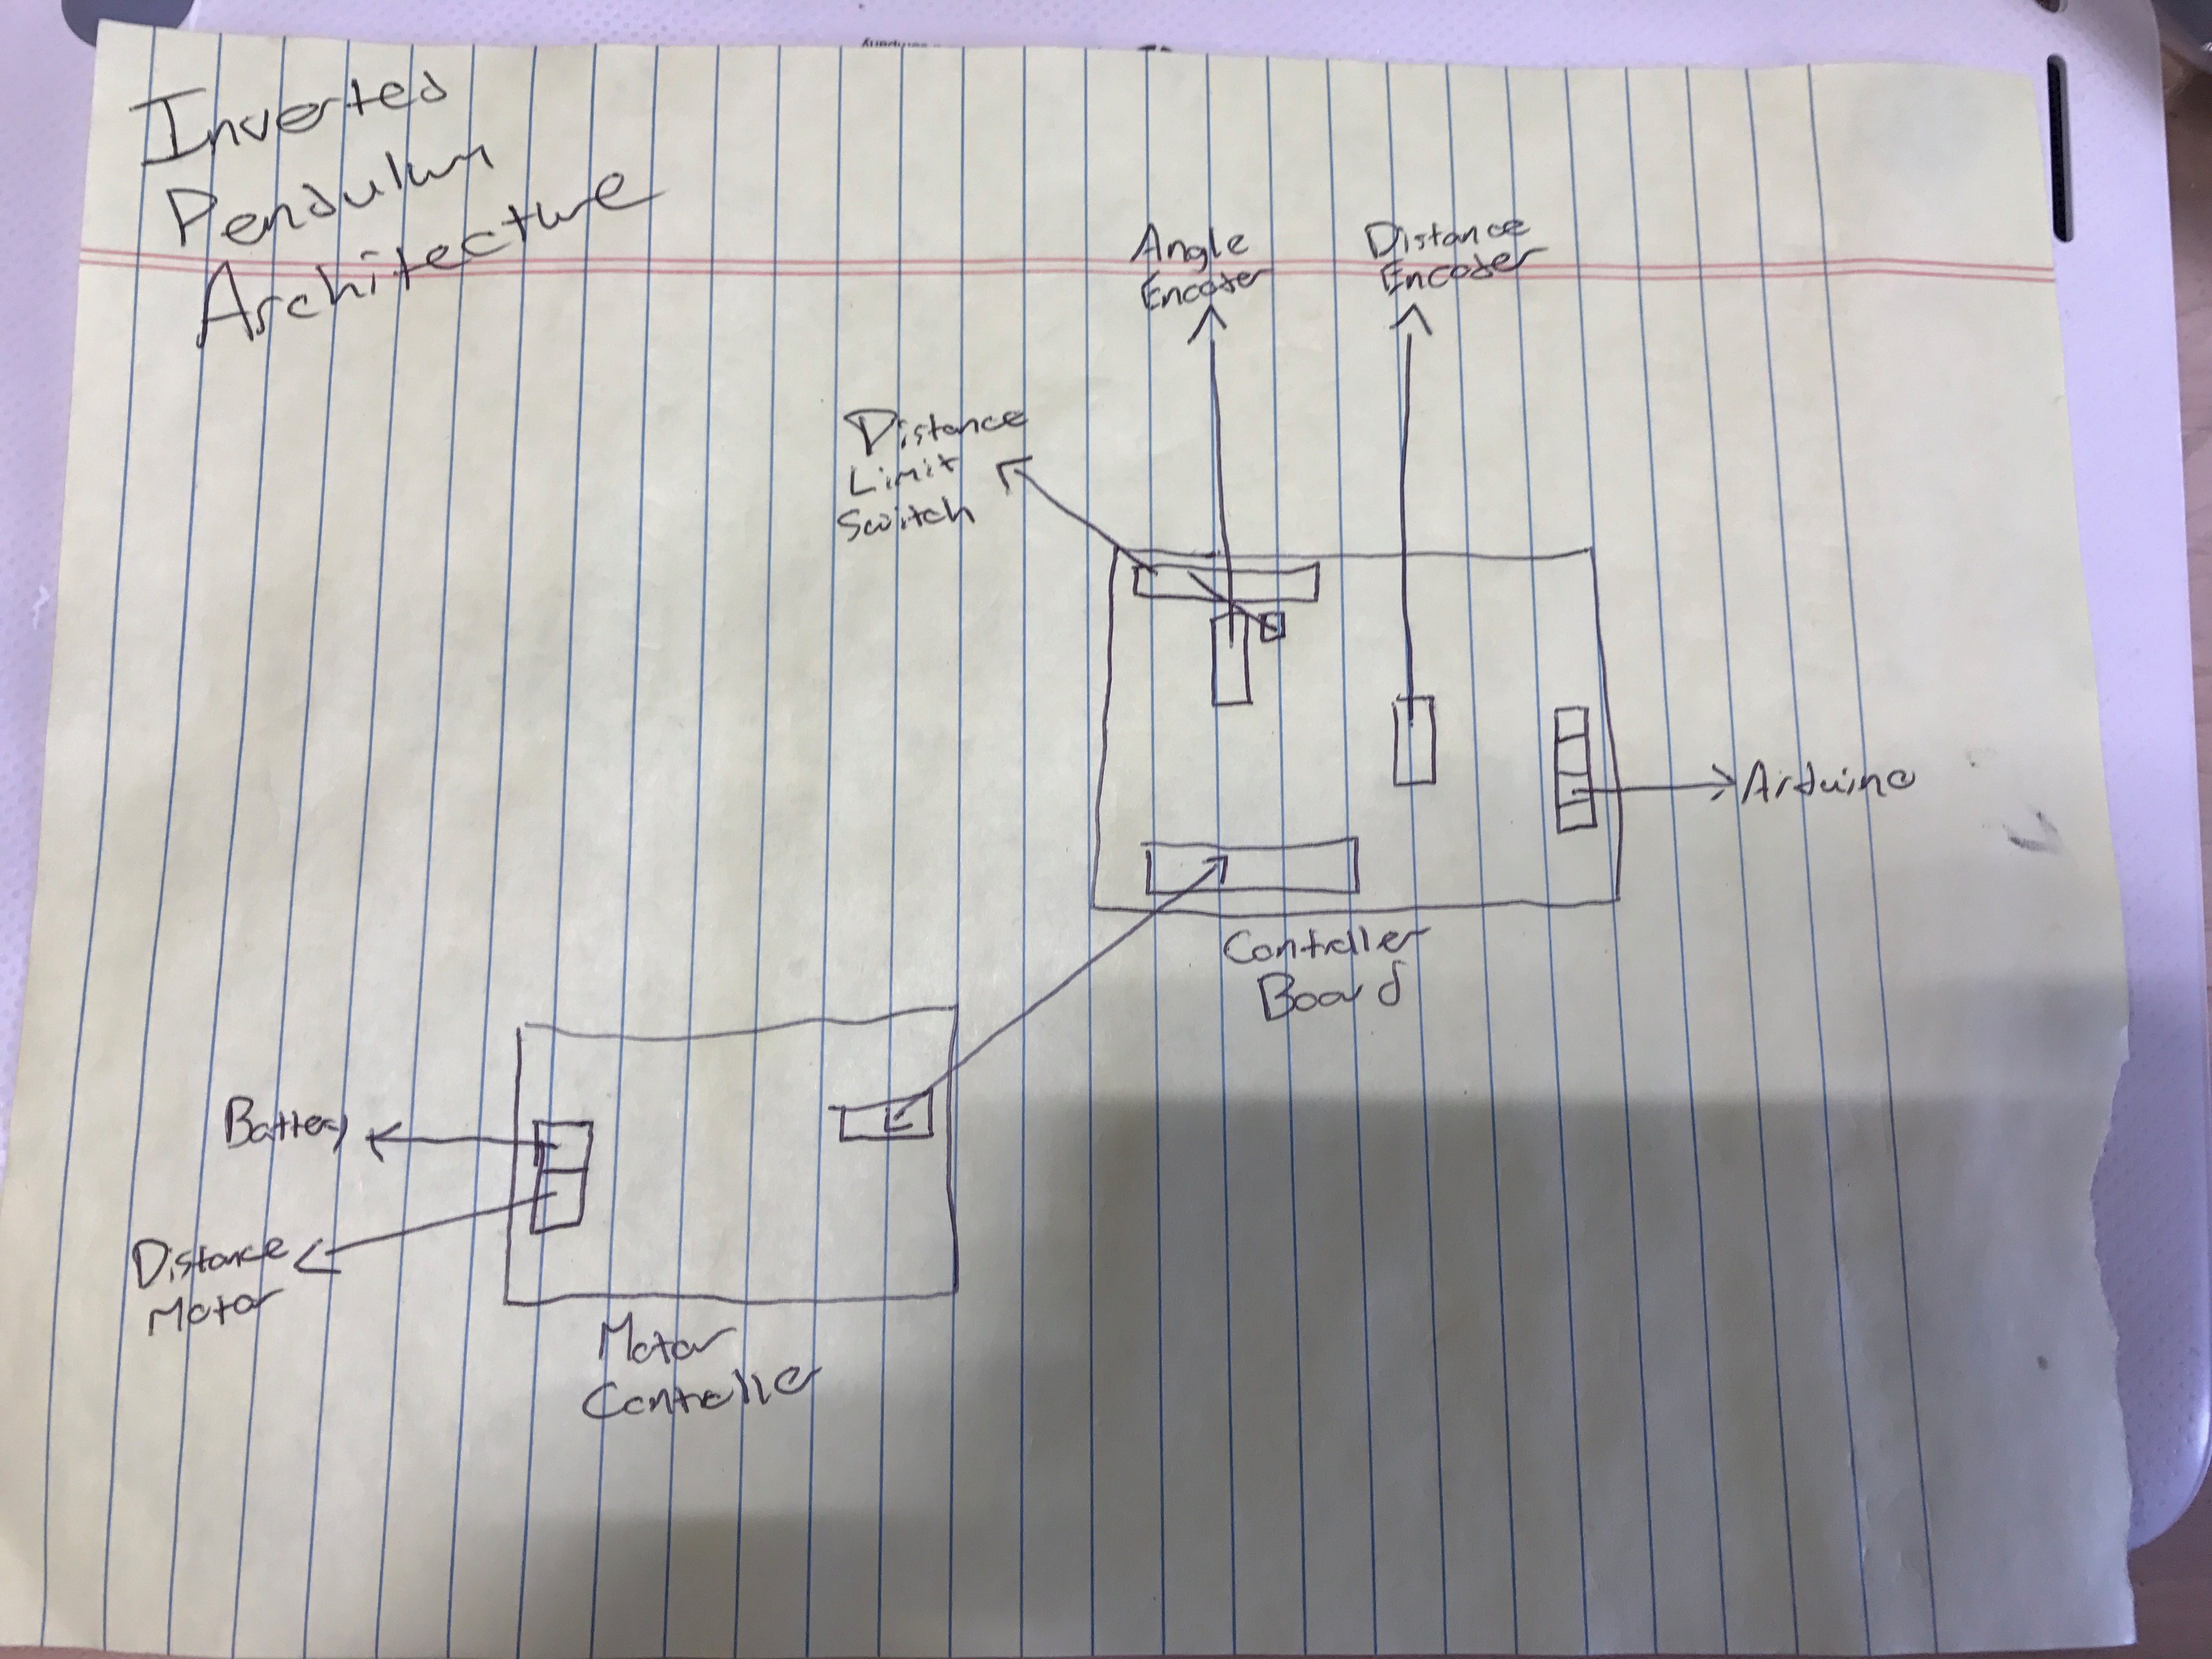 Inverted
Pendulum
Architecture
Angle
Encoder
Distance
Encoder
Distance
Limit
Switch
Arduino
Controller
Board
Battery
Distance
Motor
Motor
Controller